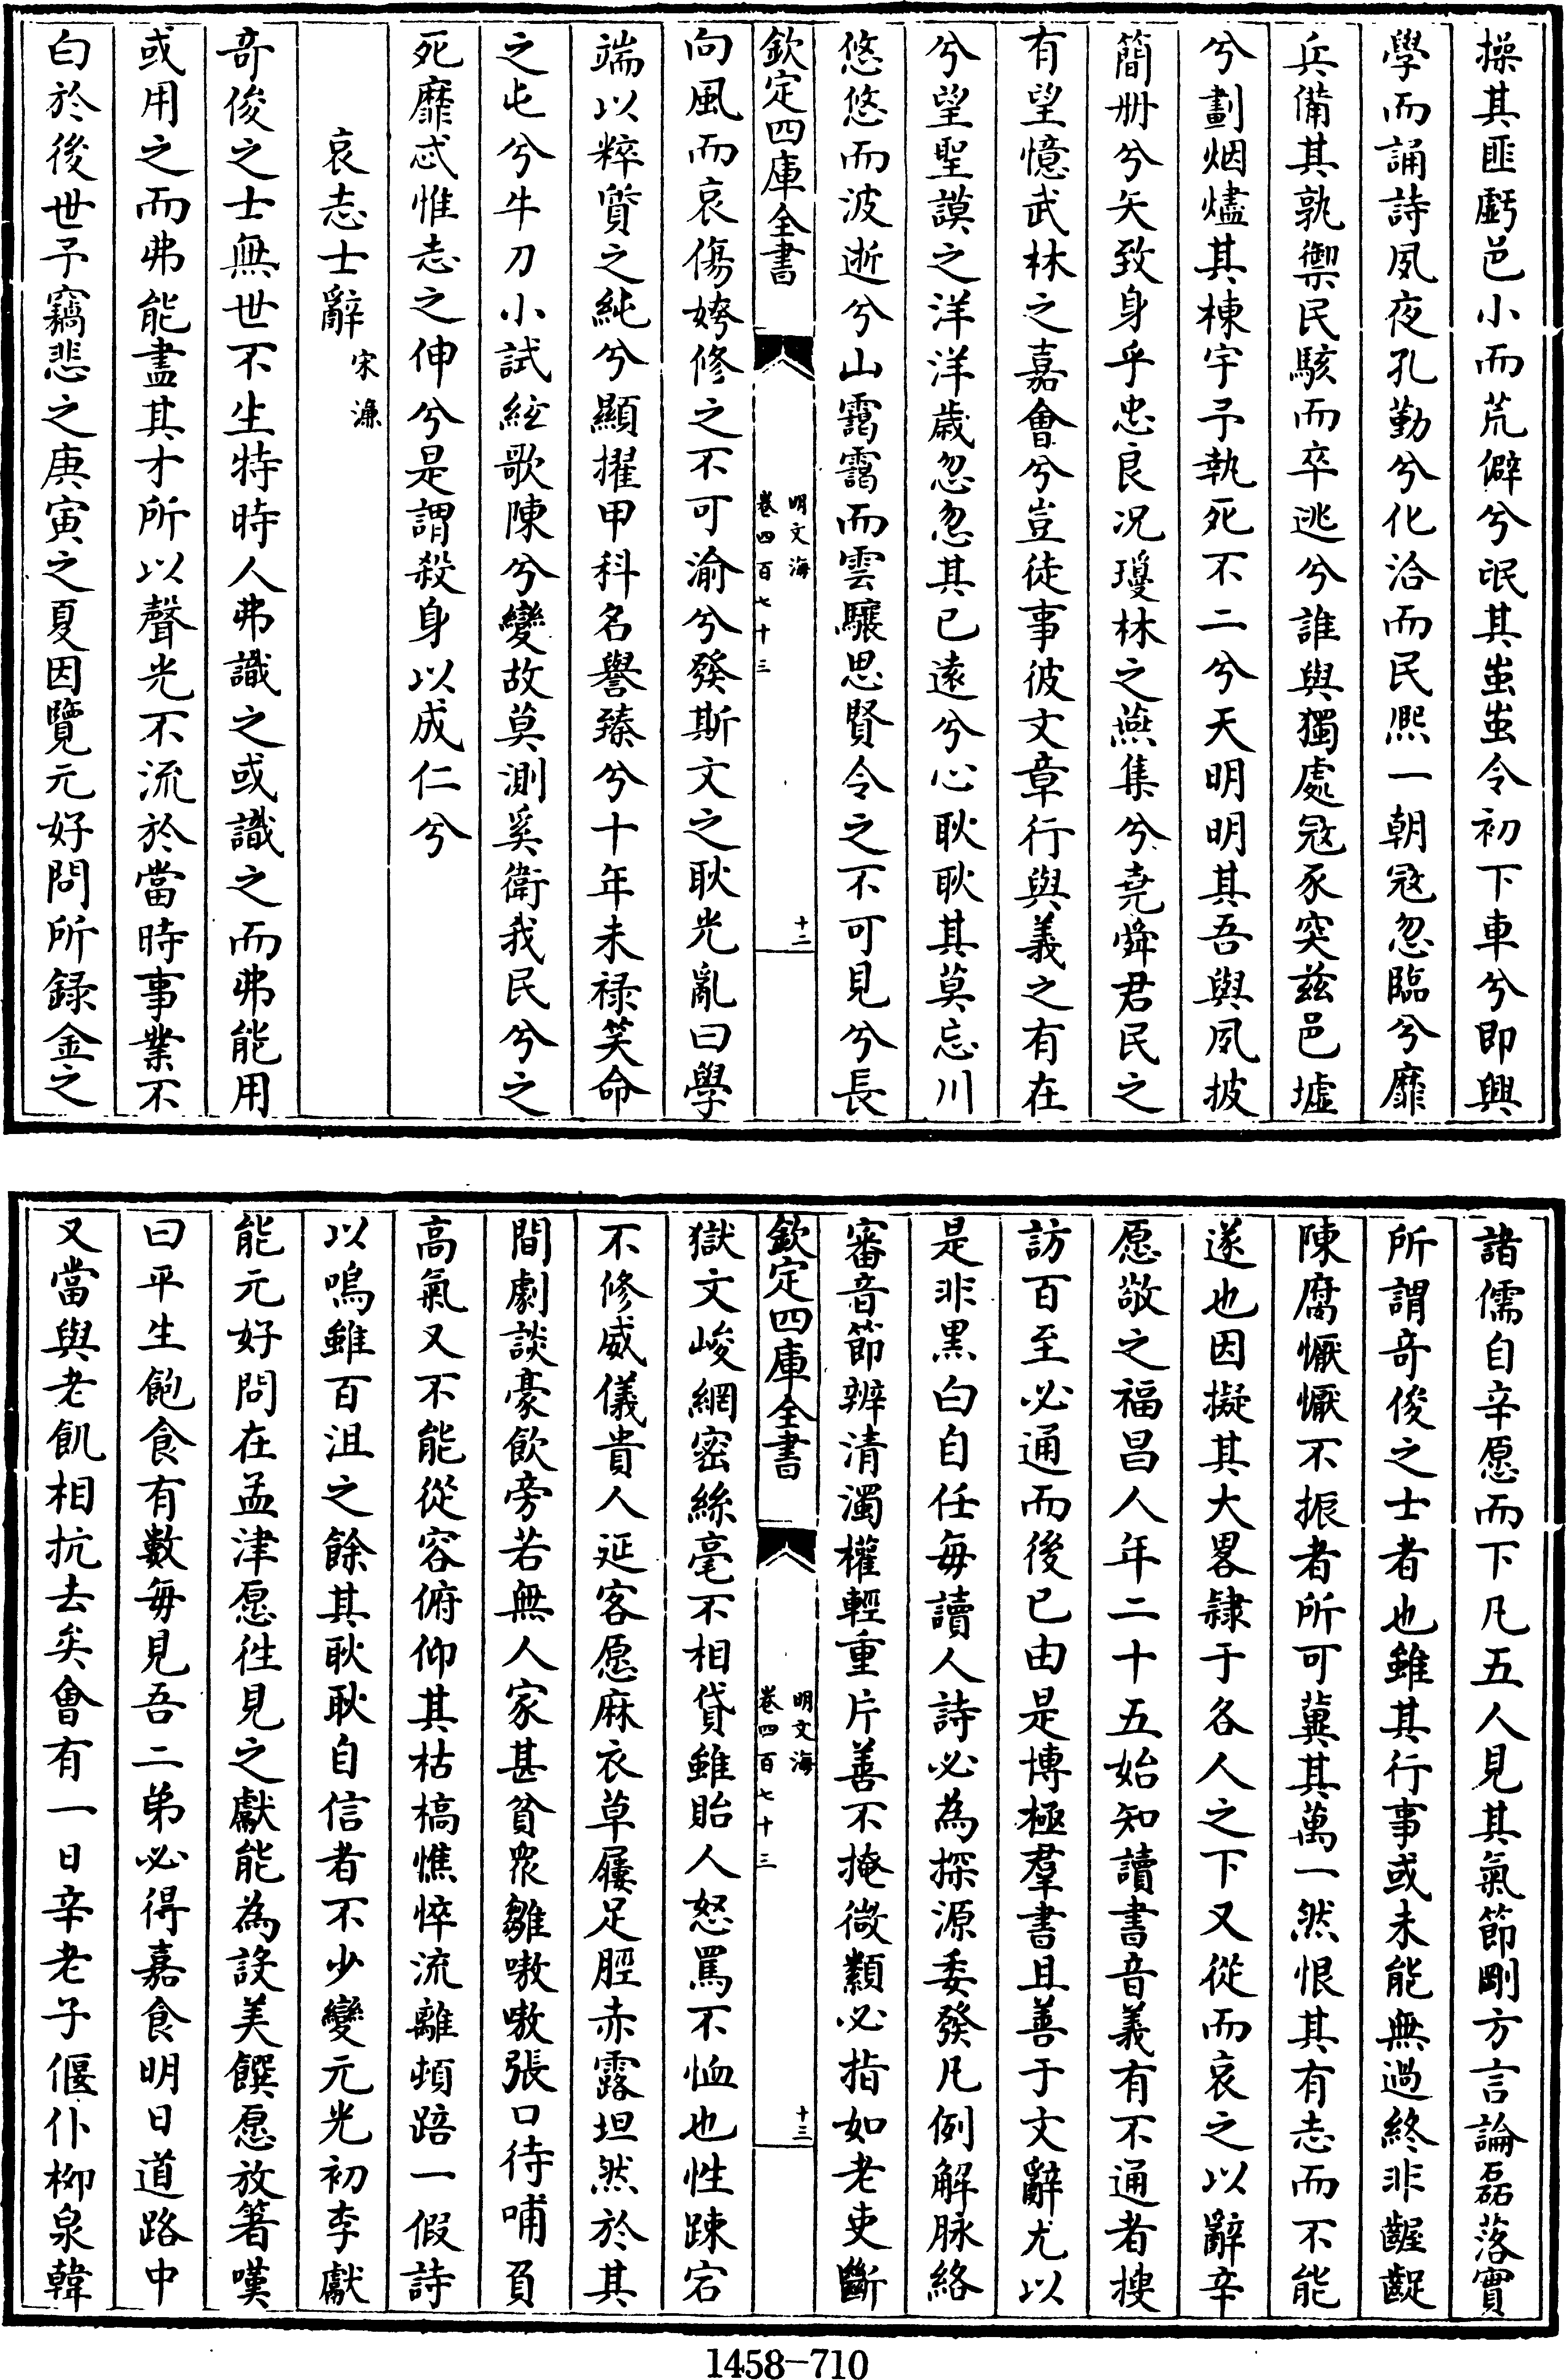 操其匪虧邑小而荒僻兮氓其蚩蚩令初下車兮即興
學而誦詩夙夜孔勤兮化洽而民熈一朝冦忽臨兮靡
兵備其孰禦民駭而卒逃兮誰與獨處冦豕突兹邑墟
兮劃烟燼其棟宇予執死不二兮天明明其吾與夙披
簡册兮矢致身乎忠良况瓊林之燕集兮堯舜君民之
有望憶武林之嘉會兮豈徒事彼文章行與義之有在
兮望聖謨之洋洋歲忽忽其已遠兮心耿耿其莫忘川
悠悠而波逝兮山靄靄而雲驤思賢令之不可見兮長
欽定四庫全書
明文海
卷四百七十三
十二
向風而哀傷姱修之不可渝兮發斯文之耿光亂曰學
端以粹質之純兮顯擢甲科名譽臻兮十年未禄笑命
之屯兮牛刀小試絃歌陳兮變故莫測奚衛我民兮之
死靡忒惟志之伸兮是謂殺身以成仁兮
哀志士辭 宋濂
奇俊之士無世不生特時人弗識之或識之而弗能用
或用之而弗能盡其才所以聲光不流於當時事業不
白於後世予竊悲之庚寅之夏因覽元好問所録金之
諸儒自辛愿而下凡五人見其氣節剛方言論磊落實
所謂奇俊之士者也雖其行事或未能無過終非齷齪
陳腐懨懨不振者所可冀其萬一然恨其有志而不能
遂也因擬其大畧隷于各人之下又從而哀之以辭辛
愿敬之福昌人年二十五始知讀書音義有不通者搜
訪百至必通而後已由是博極羣書且善于文辭尤以
是非黑白自任每讀人詩必為探源委發凡例解脉絡
審音節辨清濁權輕重片善不掩微纇必指如老吏斷
欽定四庫全書
明文海
卷四百七十三
十三
獄文峻網密絲毫不相貸雖貽人怒罵不恤也性踈宕
不修威儀貴人延客愿麻衣草屨足脛赤露坦然於其
間劇談豪飲旁若無人家甚貧衆雛嗷嗷張口待哺負
高氣又不能從容俯仰其枯槁憔悴流離頓踣一假詩
以鳴雖百沮之餘其耿耿自信者不少變元光初李獻
能元好問在孟津愿徃見之獻能為設美饌愿放箸嘆
曰平生飽食有數每見吾二弟必得嘉食明日道路中
又當與老飢相抗去矣會有一日辛老子偃仆柳泉韓
1458-710